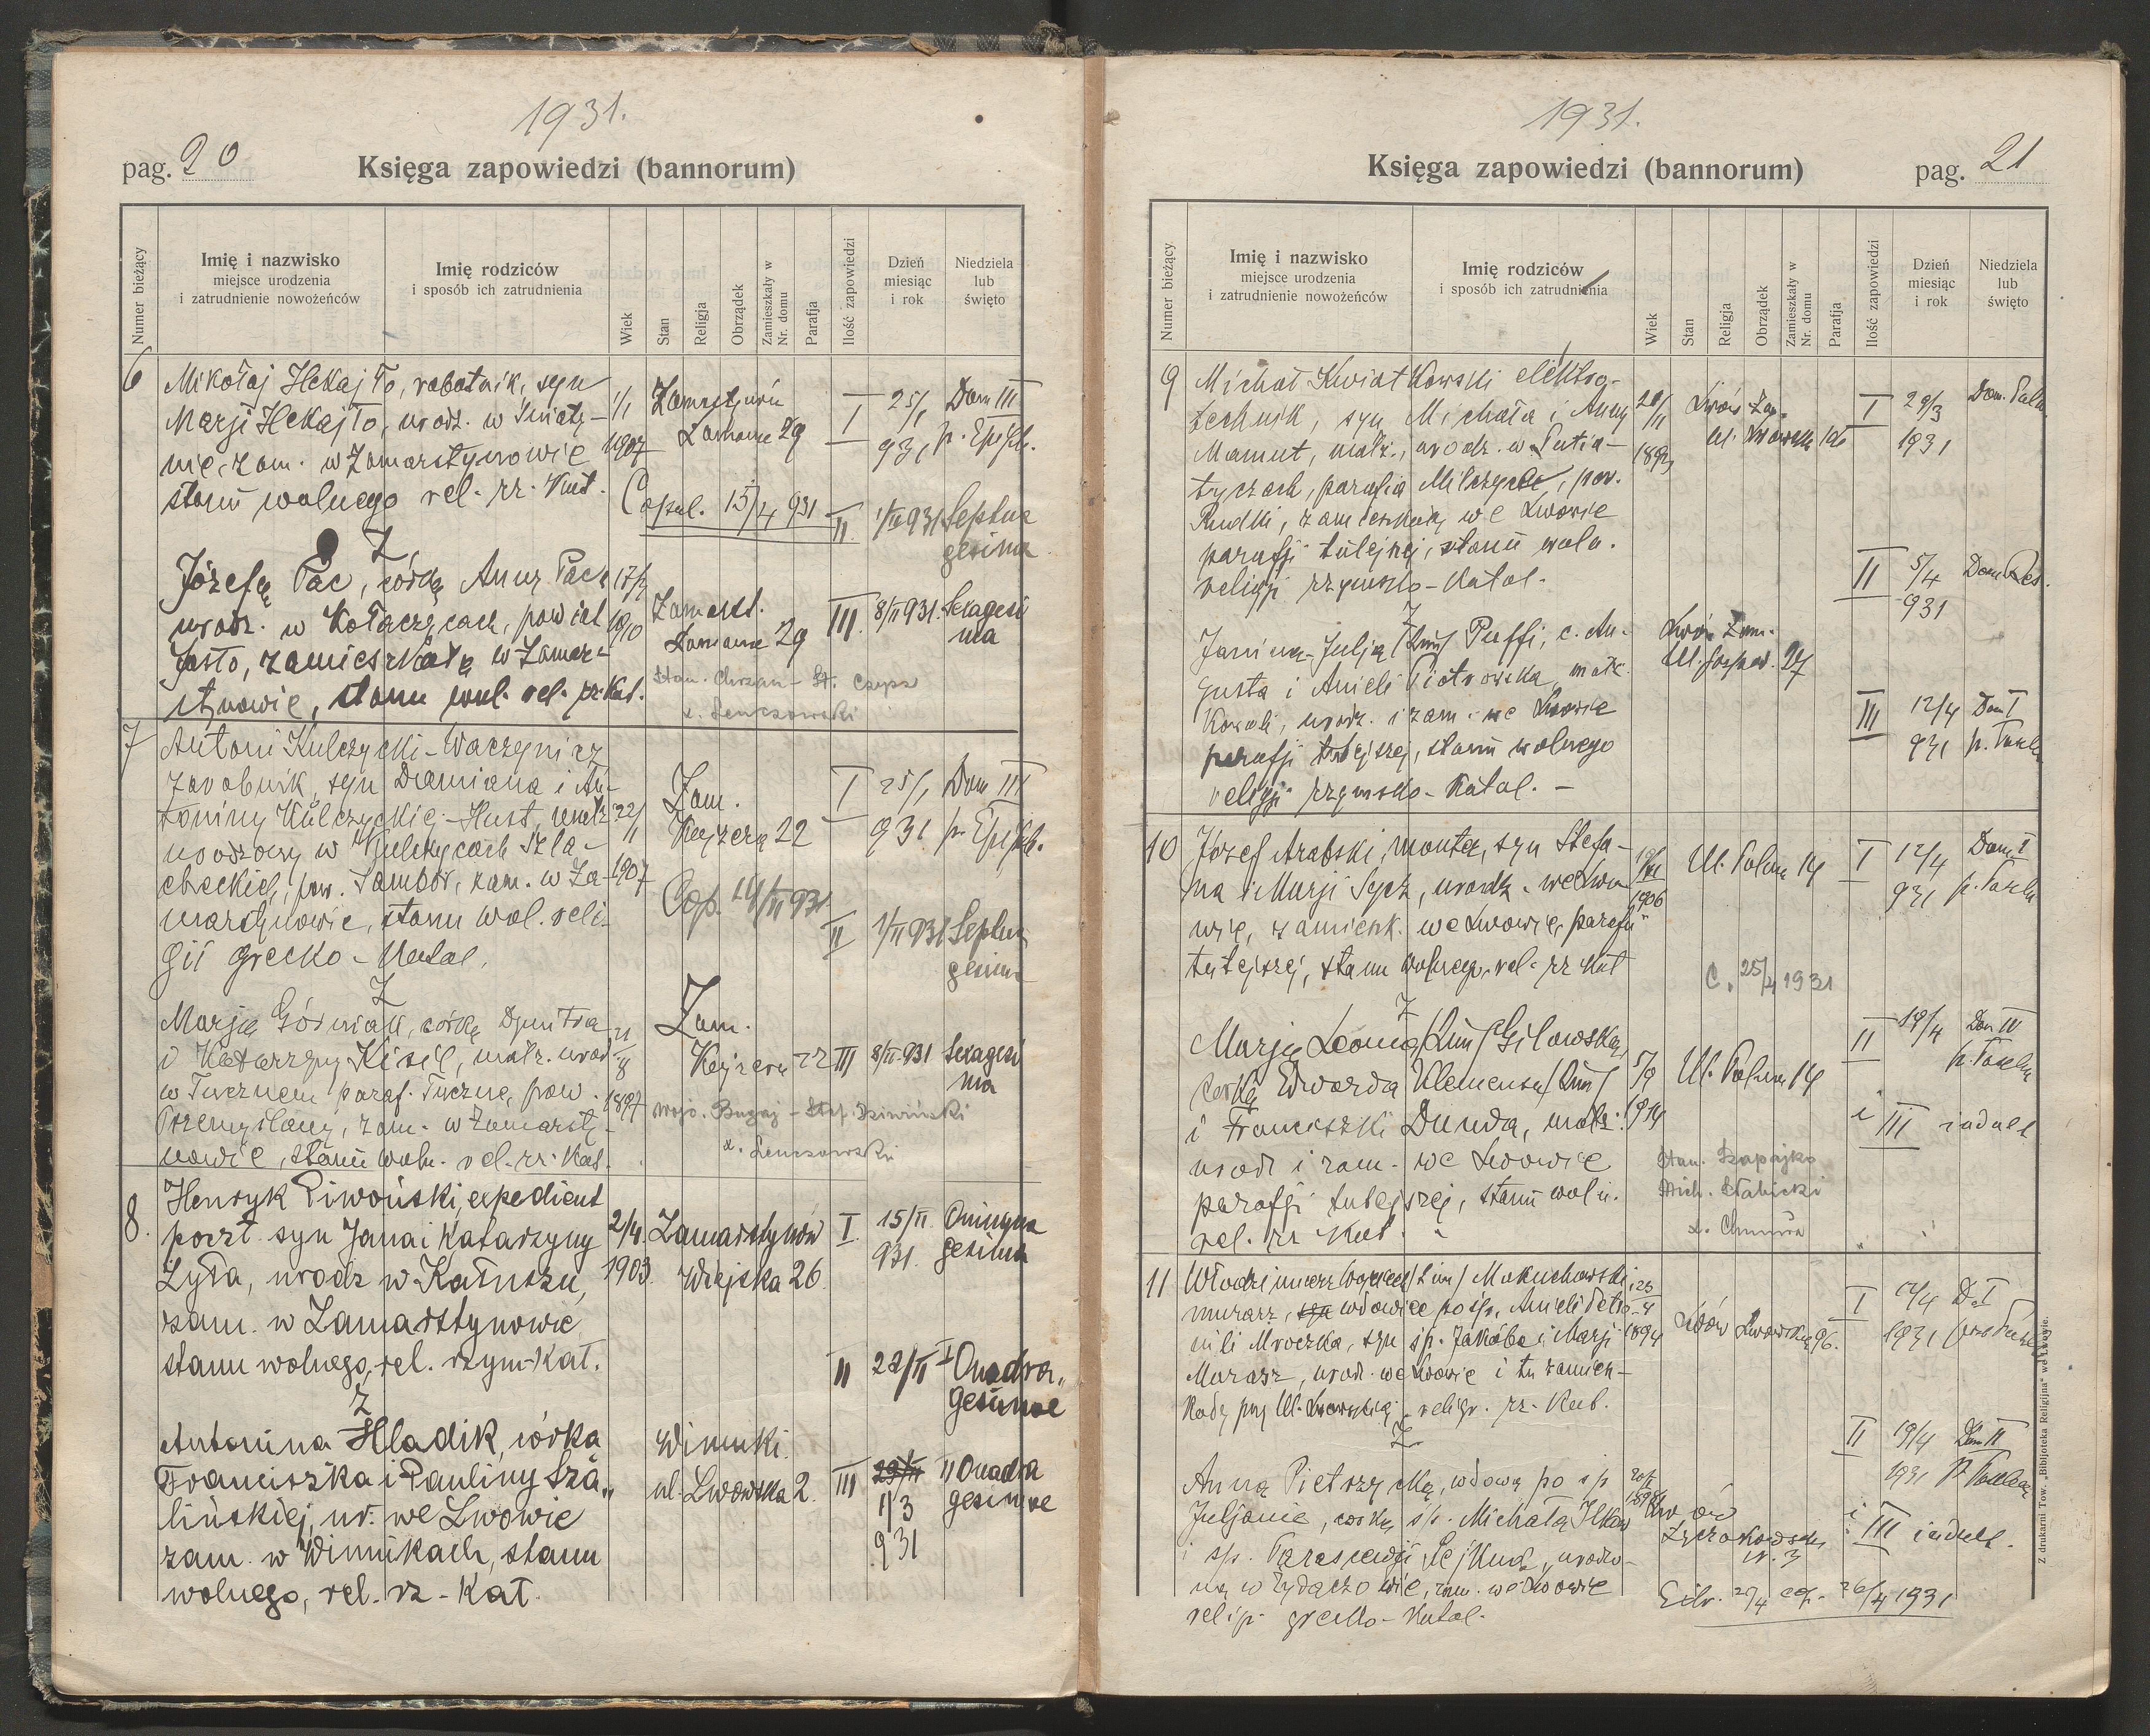 1931.
pag. 20
Księga zapowiedzi (bannorum)
Numer bieżący
Imię i nazwisko
miejsce urodzenia
i zatrudnienie nowożeńców
Imię rodziców
i sposób ich zatrudnienia
Wiek
Stan
Religja
Obrządek
Zamieszkały w
Nr. domu
Parafja
Ilość zapowiedzi
Dzień
miesiąc
i rok
Niedziela
lub
święto
6
Mikołaj Hekajło, robotnik, syn
Marji Hekajło, urodz. w Śniaty-
nie, zam. w Zamarstynowie
stanu wolnego rel. rz. Kat.
1/1
1907
29
I 25/1 931 Dom III p. Epiph.
Copul. 15/4 931
II 1/II 931 Septua
gesima
Z
Józefą Pac, córką Anny Pac
urodz. w Kołaczycach, powiat
Jasło, zamieszkałą w Zamar-
stynowie, stanu wol. rel. rz. Kat.
1910
29
III. 8/II 931. Sexagesi
ma
Stan. Chrzan - St.
x. Lenczowski
7
Antoni Kulczycki-Waczyniaz
zarobnik, syn Damiana i An-
toniny Kulczyckiej-Hust, małż.
urodzony w Kulczycach Szla-
checkich, pow. Sambor, zam. w Za-
marstynowie, stanu wol. reli-
gii grecko-Katol.
22/11
1907
Zam.
22
I 25/1 931 Dom III p. Epiph.
Cop. 14/II 931
II 1/II 931 Septua
gesima
Z
Marją Górniak, córką Dymitra
i Katarzyny Kisil, małż. urodz.
w Tucznem paraf. Tuczne, pow.
Przemyślany, zam. w Zamarsty-
nowie, stanu woln. rel. rz. Kat.
1897
Zam.
22
III 8/II 931 Sexagesi
ma
Wojc. Bugaj - Stef. Dziwiński
x. Lenczowski
8.
Henryk Piwoński, expedient
poczt. syn Jana i Katarzyny
Zyła, urodz w Kałuszu,
zam. w Zamarstynowie
stanu wolnego, rel. rzym-Kat.
2/4
1903.
Zamarstynów
Wiejska 26
I. 15/II 931. Quinqua
gesima
II 22/II I Quadra„
gesimae
Z
Antonina Hladik, córka
Franciszka i Pauliny Sza„
lińskiej, ur. we Lwowie
zam. w Winnikach, stanu
wolnego, rel. rz-Kat.
Winniki
ul. Lwowska 2.
III 1/3 931 II Quadra
gesimae
1931.
Księga zapowiedzi (bannorum)
pag. 21
Numer bieżący
Imię i nazwisko
miejsce urodzenia
i zatrudnienie nowożeńców
Imię rodziców
i sposób ich zatrudnienia
Wiek
Stan
Religja
Obrządek
Zamieszkały w
Nr. domu
Parafja
Ilość zapowiedzi
Dzień
miesiąc
i rok
Niedziela
lub
święto
9
Michał Kwiatkowski elektro-
technik, syn Michała i Anny
Mamut, małż., urodz. w Putia-
tyczach, parafia Milczyce, pow.
Rudki, zamieszkały we Lwowie
parafji tutejszej, stanu woln.
religji rzymsko-Katol.
Lwów Zam.
I 29/3 1931 Dom. Palm.
II 5/4 931 Dom Res.
Z
Janina-Julja /2im/ Puffi, c. Au-
gusta i Anieli Piotrowska, małż.
urodz. i zam. we Lwowie
parafji tutejszej, stanu wolnego
religji rzymsko-Katol. -
Lwów Zam.
27
III 12/4 931 Dom I p. Pascha
10
Józef Arabski, monter, syn Stefa-
na i Marji Sycz, urodz. we Lwo-
wie, zamieszk. we Lwowie, parafji
tutejszej, stanu wolnego, rel. rz Kat
1906
Ul. Polna 14
I 12/4 931 Dom I p. Pascha
C. 25/4 1931
Z
Marją Leonią /2im/ Gilowską,
córką Edwarda Klemensa /2im/
i Franciszki Dunda, małż.
urodz i zam. we Lwowie
parafji tutejszej, stanu woln.
rel. rz Kat.
5/9
1914
Ul. Polna 14
II 19/4 Dom II p. Pascha
i III indult
Stan. Szapajko
Mich. Słabicki
x. Chmura
11
Włodzimierz Wojciech /2im/ Makuchowski
murarz, wdowiec po śp. Anieli Petro-
neli Mroczka, syn śp. Jakóba i Marji
Murasz, urodz. we Lwowie i tu zamiesz-
kały przy Ul. Lwowskiej religj. rz. Kat.
1894
Lwów Lwowska 96.
I 12/4 1931 D. I
Z
Anną Pietrzycką, wdową po śp
Juljanie, córką śp. Michała Ilków
i śp. Parascewji Sejkuła, urodzo-
ną w Żydaczowie, zam. we Lwowie
religj. grecko-Katol.
Lwów
Łyczakowska
nr. 3
II 19/4 1931 Dom II p. Pascha
i III indult.
26/4 1931
Z drukarni Tow. „Bibljoteka Religijna" we Lwowie.